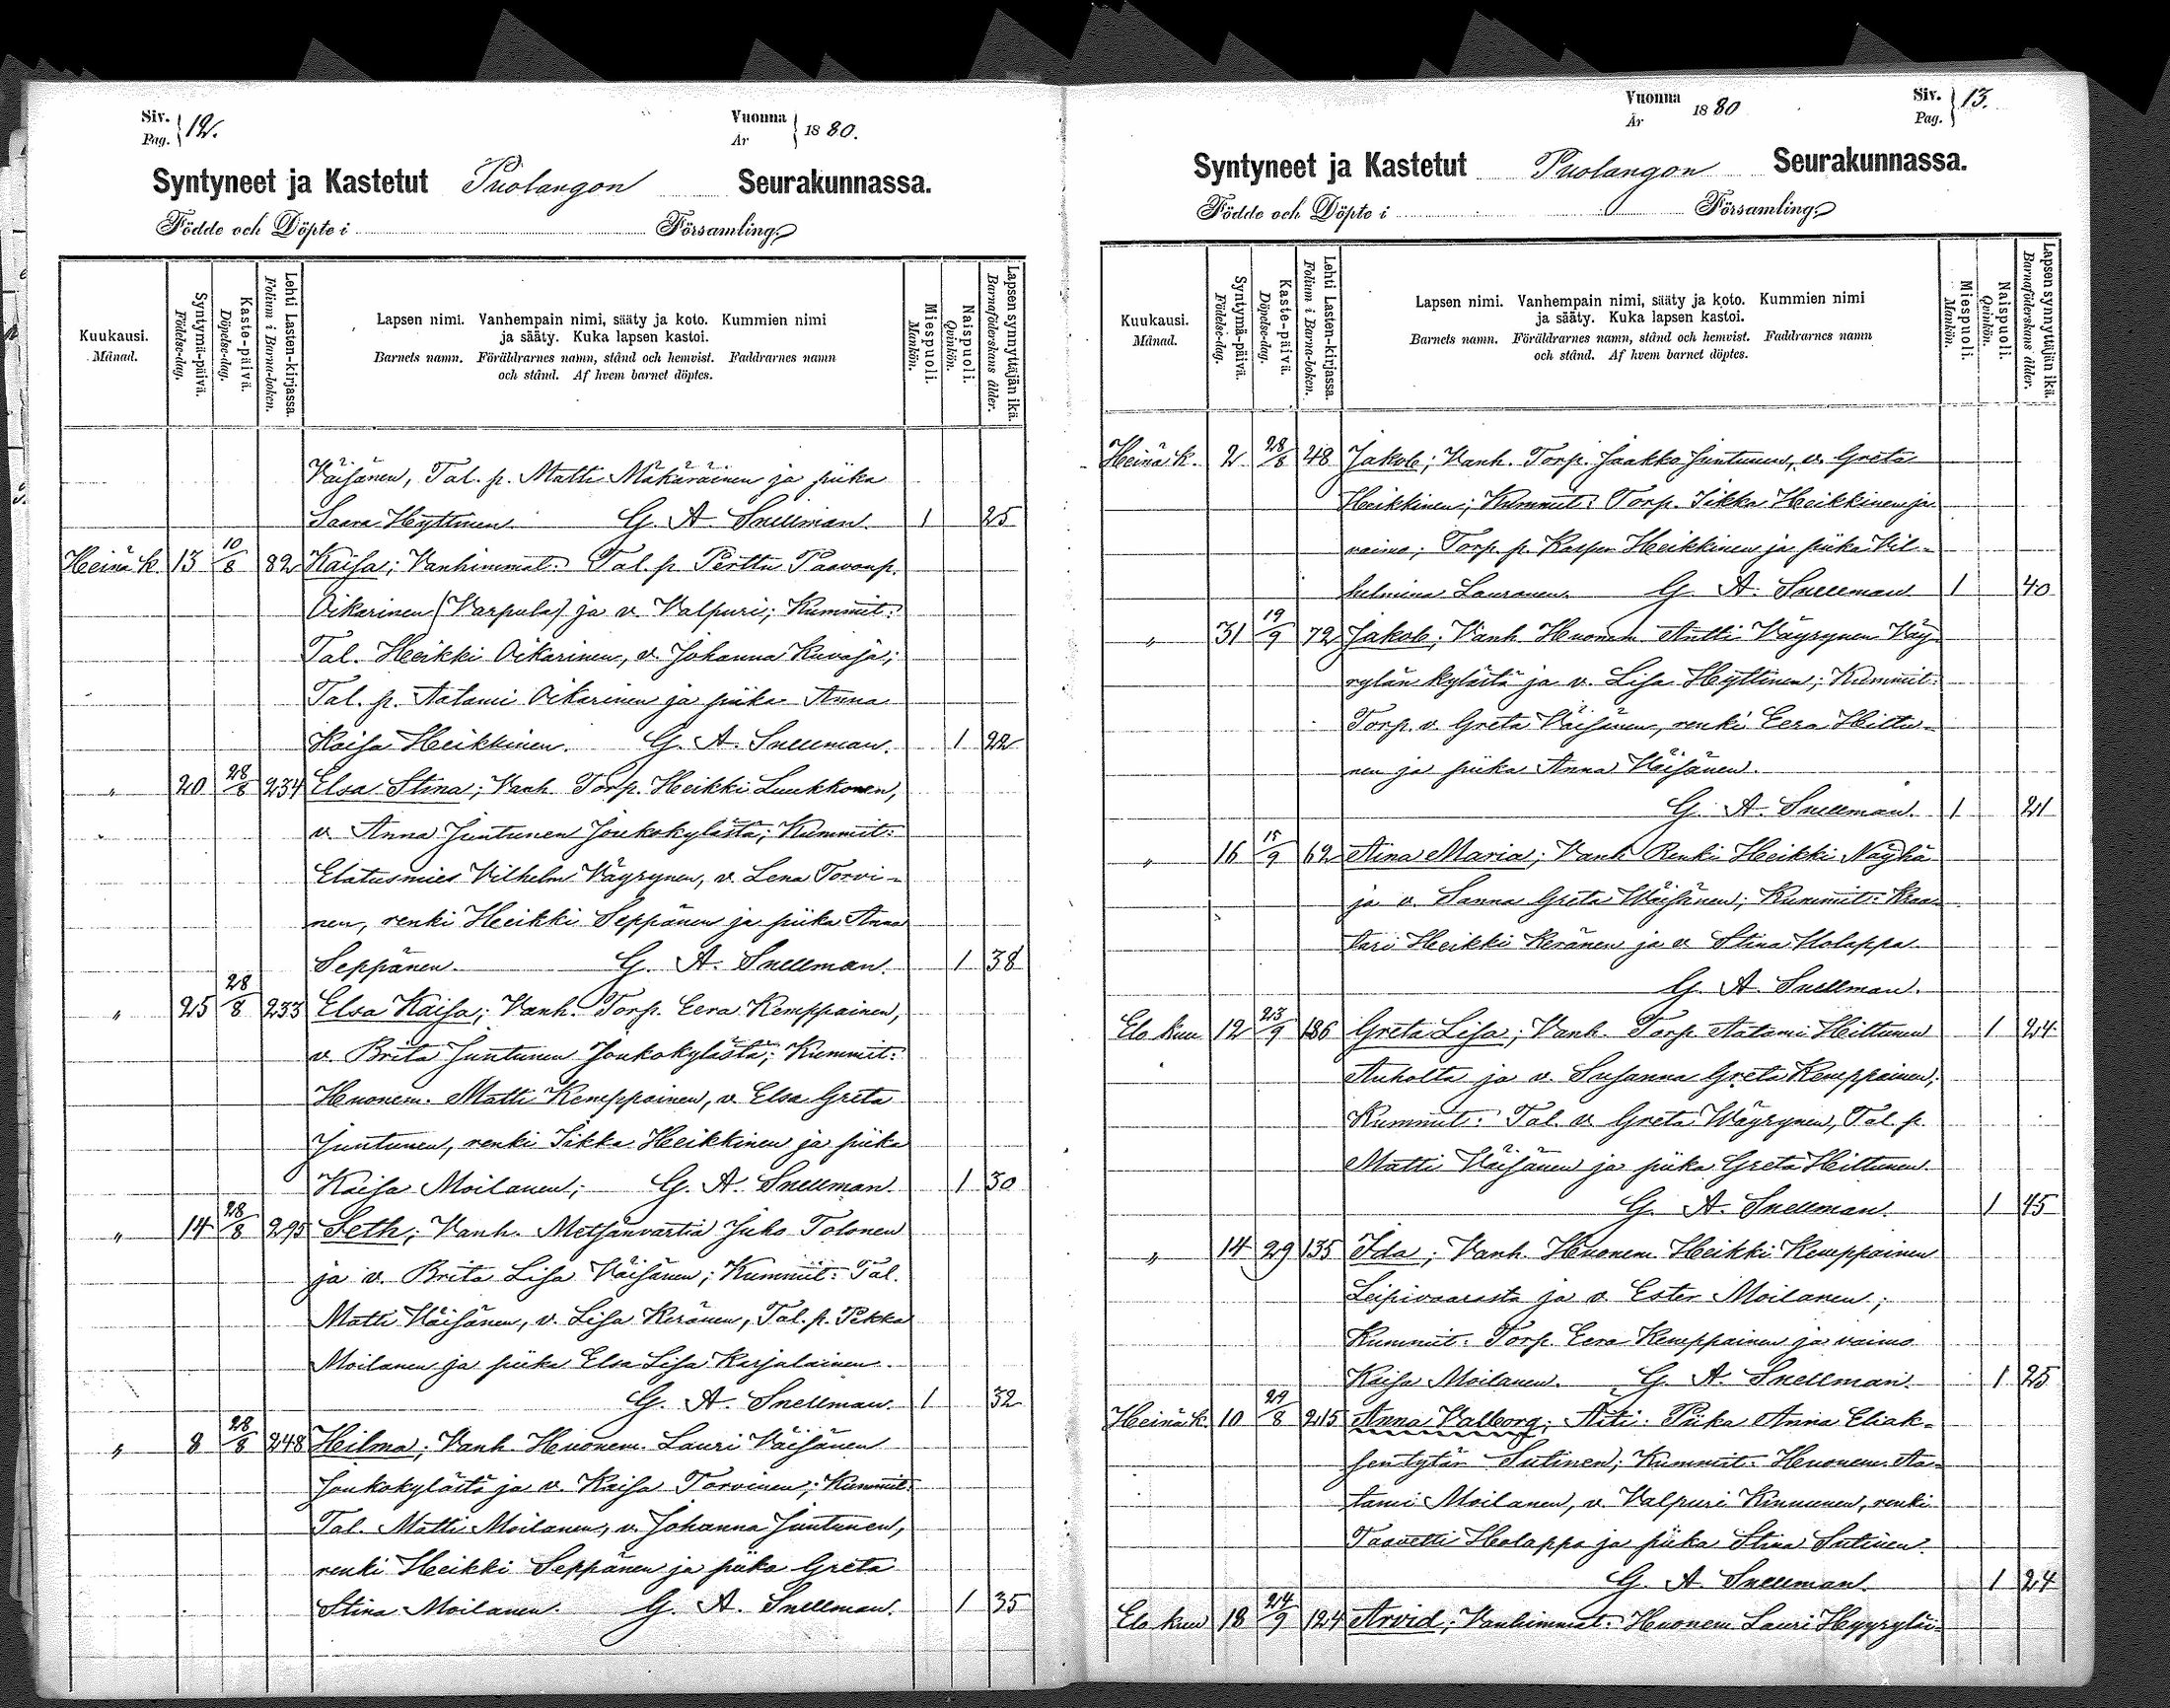 Siv. Pag. } 12.
Vuonna År } 1880.
Syntyneet ja Kastetut Puolangon Seurakunnassa.
Födde och Döpte i Församling.
Kuukausi. Månad.
Syntymä-päivä. Födelse-dag.
Kaste-päivä. Döpelse-dag.
Lehti Lasten-kirjassa. Folium i Barna-boken.
Lapsen nimi. Vanhempain nimi, sääty ja koto. Kummien nimi
ja sääty. Kuka lapsen kastoi.
Barnets namn. Föräldrarnes namn, stånd och hemvist. Faddrarnes namn
och stånd. Af hvem barnet döptes.
Miespuoli. Mankön.
Naispuoli. Qvinkön.
Lapsen synnyttäjän ikä. Barnaföderskans ålder.
Väisänen, Tal. p. Matti Mäkäräinen ja piika
Saara Hyttinen. G. A. Snellman. 1 25
Heinä k. 13 10/8 82 Kaisa; Vanhimmat: Tal. p. Perttu Paavonp.
Oikarinen (Varpula) ja v. Valpuri; Kummit:
Tal. Heikki Oikarinen, v. Johanna Kuvaja;
Tal. p. Aatami Oikarinen ja piika Anna
Kaisa Heikkinen. G. A. Snellman. 1 22
„ 20 28/8 234 Elsa Stina; Vanh. Torp. Heikki Luukkonen,
v. Anna Juntunen Joukokylästä; Kummit:
Elatusmies Vilhelm Väyrynen, v. Lena Torvi-
nen, renki Heikki Seppänen ja piika Anna
Seppänen. G. A. Snellman. 1 38
„ 25 28/8 233 Elsa Kaisa; Vanh. Torp. Eera Kemppainen,
v. Brita Juntunen Joukokylästä; Kummit:
Huonem. Matti Kemppainen, v. Elsa Greta
Juntunen, renki Iikka Heikkinen ja piika
Kaisa Moilanen; G. A. Snellman. 1 30
„ 14 28/8 295 Seth; Vanh. Metsänvartia Juho Tolonen
ja v. Brita Lisa Väisänen; Kummit: Tal.
Matti Väisänen, v. Lisa Keränen, Tal. p. Pekka
Moilanen ja piika Elsa Lisa Karjalainen.
G. A. Snellman. 1 32
„ 8 28/8 248 Hilma; Vanh. Huonem. Lauri Väisänen
Joukokylästä ja v. Kaisa Torvinen; Kummit:
Tal. Matti Moilanen, v. Johanna Juntunen,
renki Heikki Seppänen ja piika Greta
Stina Moilanen. G. A. Snellman. 1 35
Vuonna År 1880
Siv. Pag. } 13.
Syntyneet ja Kastetut Puolangon Seurakunnassa.
Födde och Döpte i Församling.
Kuukausi. Månad.
Syntymä-päivä. Födelse-dag.
Kaste-päivä. Döpelse-dag.
Lehti Lasten-kirjassa. Folium i Barna-boken.
Lapsen nimi. Vanhempain nimi, sääty ja koto. Kummien nimi
ja sääty. Kuka lapsen kastoi.
Barnets namn. Föräldrarnes namn, stånd och hemvist. Faddrarnes namn
och stånd. Af hvem barnet döptes.
Miespuoli. Mankön.
Naispuoli. Qvinkön.
Lapsen synnyttäjän ikä. Barnaföderskans ålder.
Heinä k. 2 28/8 48 Jakob; Vanh. Torp. Jaakko Juntunen, v. Greta
Heikkinen; Kummit: Torp. Iikka Heikkinen ja
vaimo; Torp. p. Kasper Heikkinen ja piika Vil-
helmina Lauronen. G. A. Snellman 1 40
„ 31 19/9 72 Jakob; Vanh. Huonem. Antti Väyrynen Väy-
rylän kylästä ja v. Lisa Hyttinen; Kummit:
Torp. v. Greta Väisänen, renki Eera Hiltu-
nen ja piika Anna Väisänen.
G. A. Snellman. 1 21
„ 16 15/9 62 Aina Maria; Vanh. Renki Heikki Näyhä
ja v. Sanna Greta Wäisänen; Kummit: Kraa-
tari Heikki Keränen ja v. Stina Holappa
G. A. Snellman.
Elo kuu 12 23/9 186 Greta Lisa; Vanh. Torp. Aatami Hiltunen 1 24
Auholta ja v. Susanna Greta Kemppainen;
Kummit: Tal. v. Greta Wäyrynen, Tal. p.
Matti Väisänen ja piika Greta Hiltunen.
G. A. Snellman. 1 45
„ 14 29 135 Ida; Vanh. Huonem. Heikki Kemppainen
Leipivaarasta ja v. Ester Moilanen;
Kummit: Torp. Eera Kemppainen ja vaimo
Kaisa Moilanen. G. A. Snellman. 1 25
Heinä k. 10 29/8 215 Anna Valborg; Äiti: Piika Anna Eliak-
sentytär Sutinen; Kummit: Huonem. Aa-
tami Moilanen, v. Valpuri Kinnunen, renki
Taavetti Holappa ja piika Stina Sutinen.
G. A. Snellman. 1 24
Elo kuu 18 24/9 124 Arvid; Vanhimmat: Huonem. Lauri Hyyryläi-